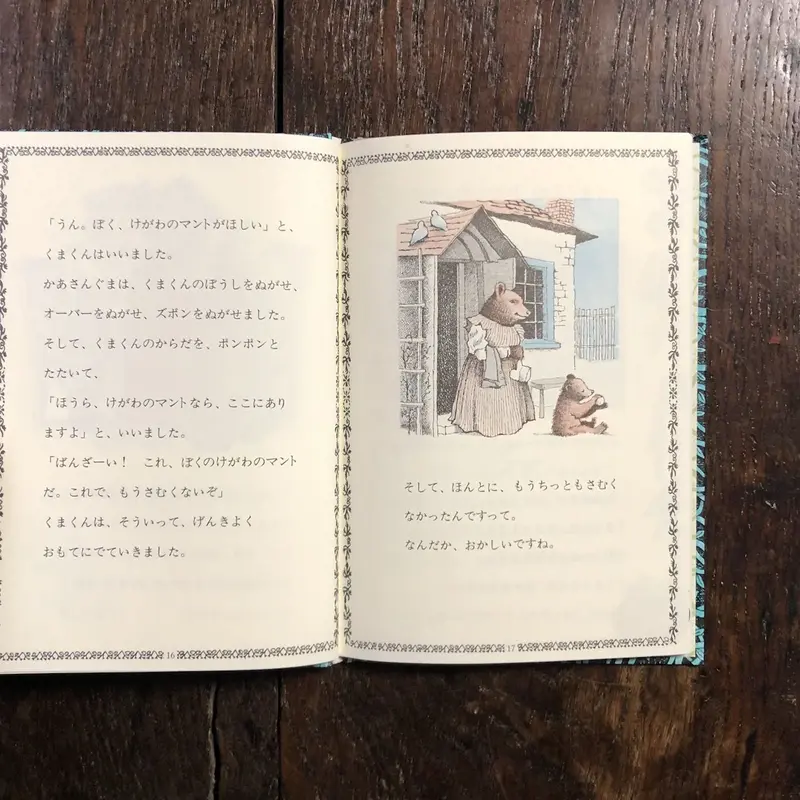 「うん。ぼく、けがわのマントがほしい」と、
くまくんはいいました。
かあさんぐまは、くまくんのぼうしをぬがせ、
オーバーをぬがせ、ズボンをぬがせました。
そして、くまくんのからだを、ポンポンと
たたいて、
「ほうら、けがわのマントなら、ここにあり
ますよ」と、いいました。
「ばんざーい！　これ、ぼくのけがわのマント
だ。これで、もうさむくないぞ」
くまくんは、そういって、げんきよく
おもてにでていきました。
16
そして、ほんとに、もうちっともさむく
なかったんですって。
なんだか、おかしいですね。
17